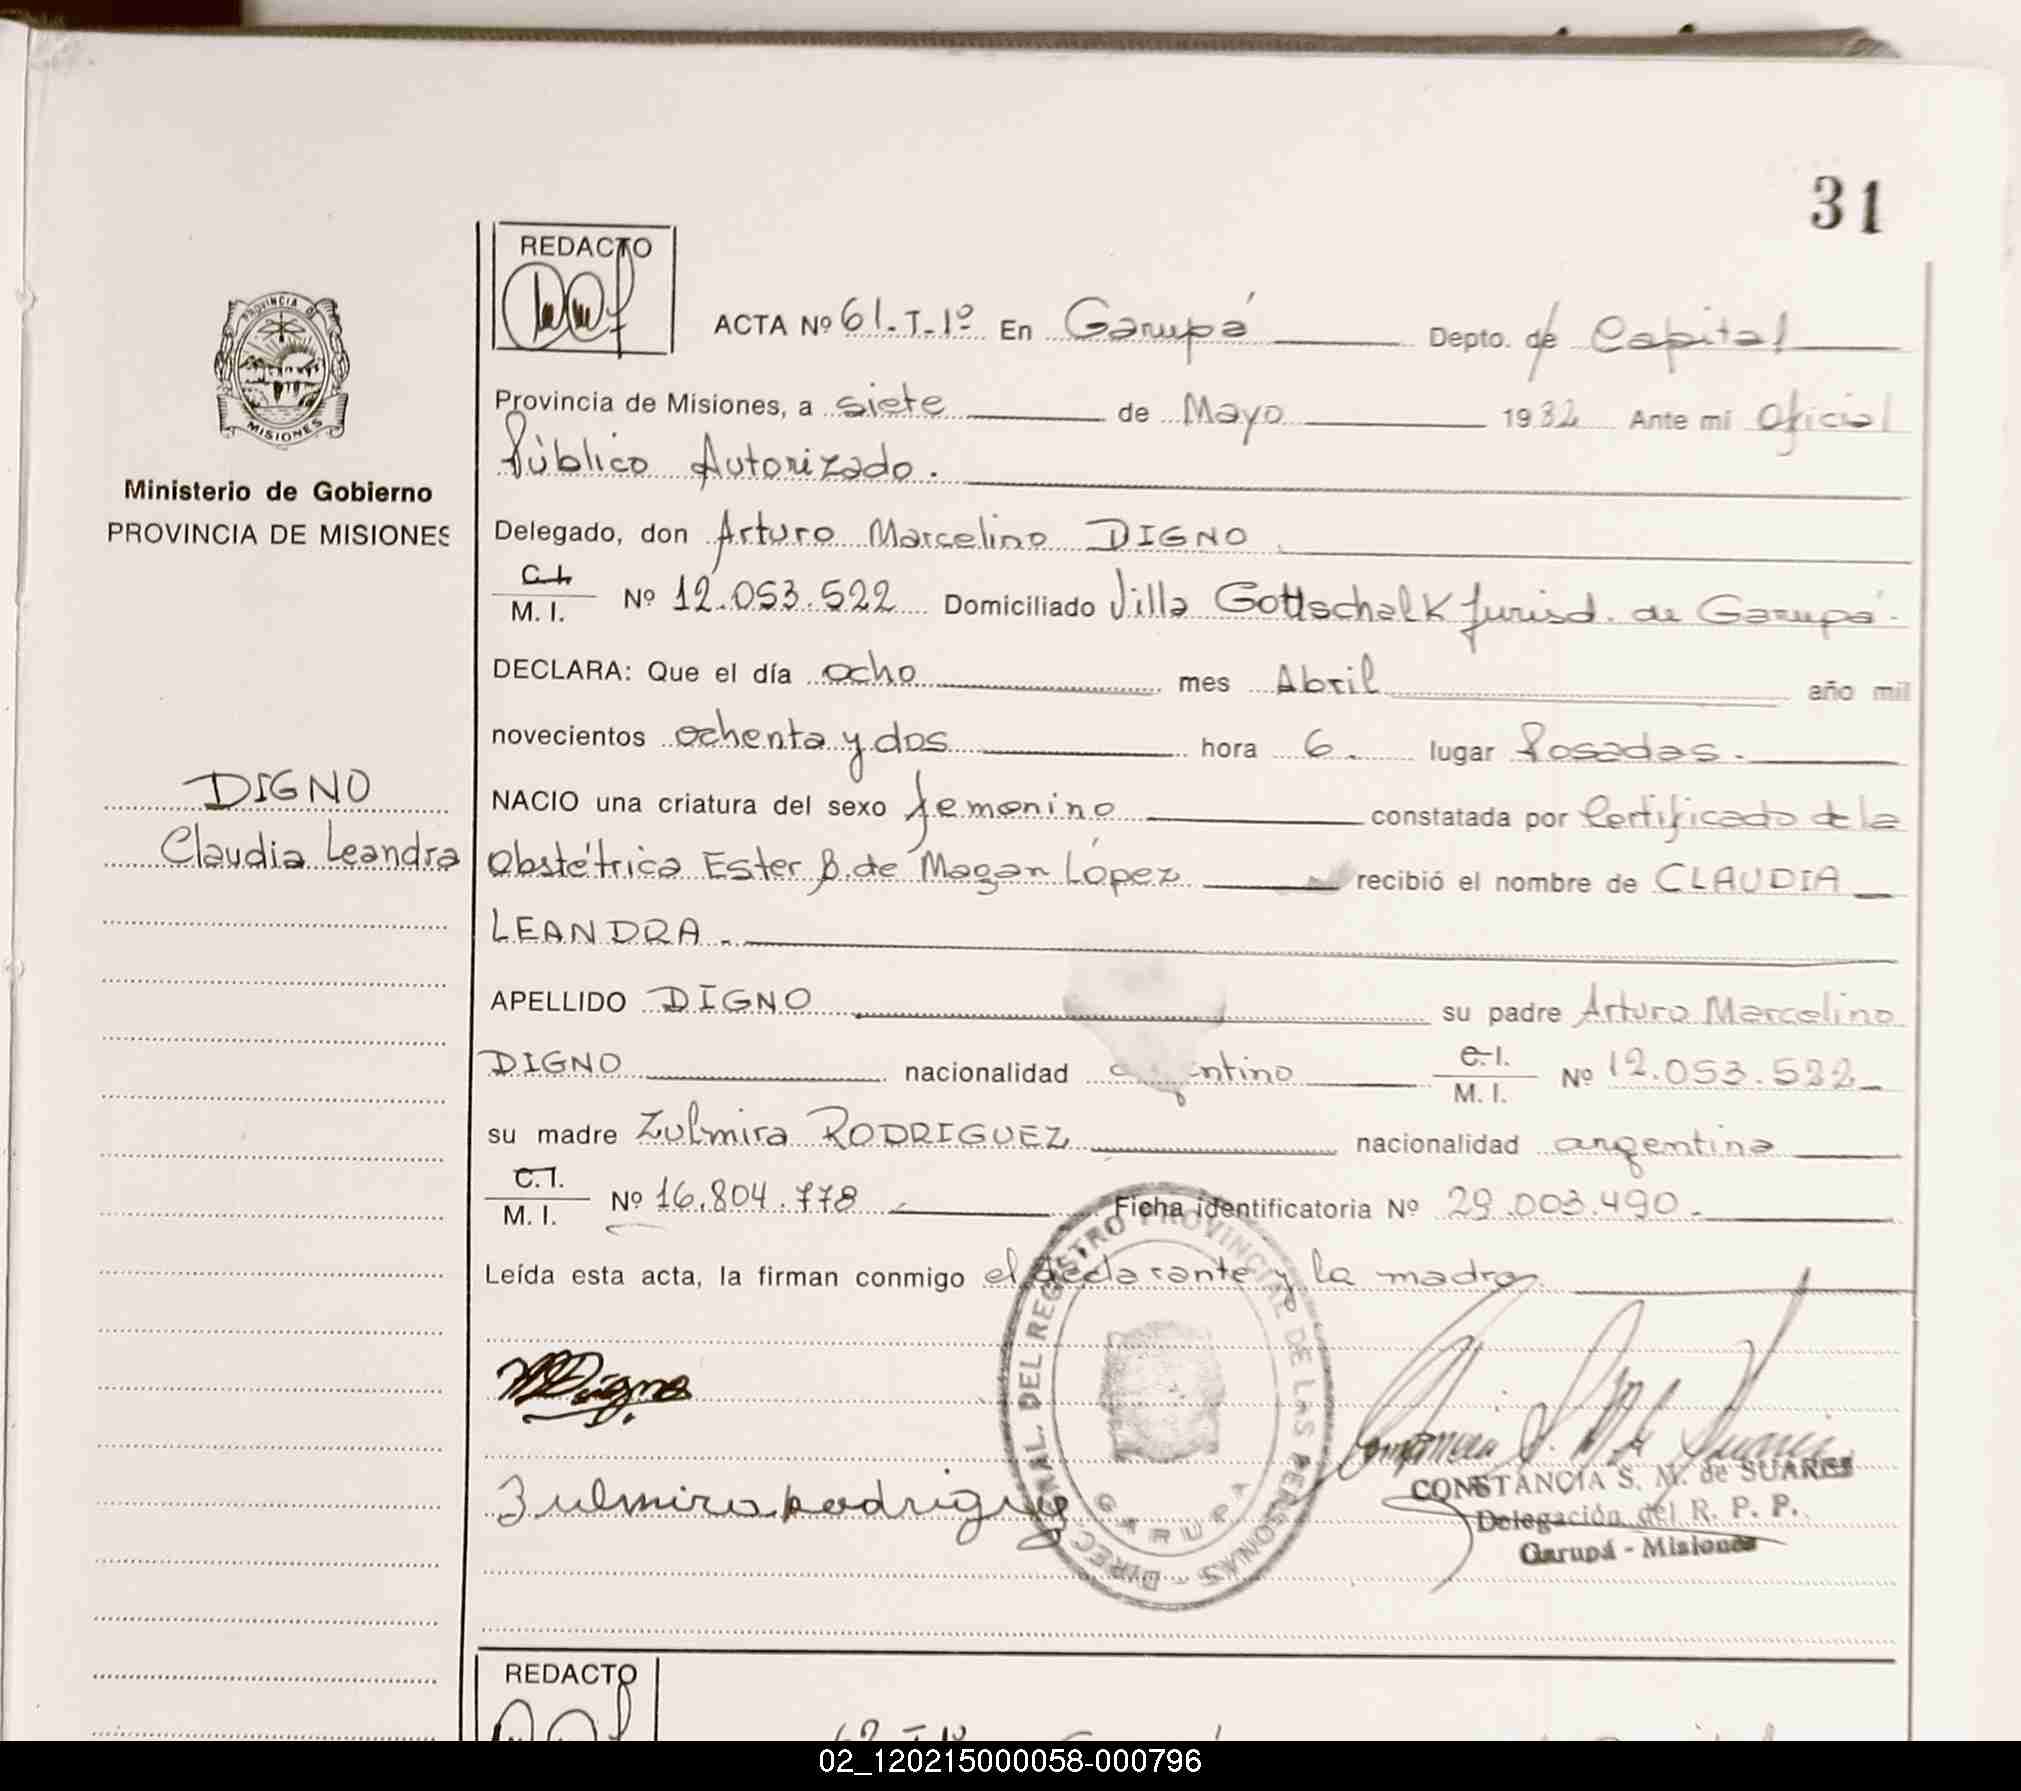 31
REDACTO
ACTA Nº 61-T-1º En Garupá Depto. de Capital
PROVINCIA DE
MISIONES
Provincia de Misiones, a siete de Mayo 1982 Ante mi Oficial
Público Autorizado.
Ministerio de Gobierno
PROVINCIA DE MISIONES
Delegado, don Arturo Marcelino DIGNO
C.I.
M. I. Nº 12.053.522 Domiciliado Villa Gottschalk Jurisd. de Garupá.
DECLARA: Que el día ocho mes Abril año mil
novecientos ochenta y dos hora 6. lugar Posadas.
DIGNO
NACIO una criatura del sexo femenino constatada por Certificado de la
Claudia Leandra
Obstétrica Ester B. de Magan López recibió el nombre de CLAUDIA
LEANDRA.
APELLIDO DIGNO su padre Arturo Marcelino
DIGNO nacionalidad argentino C.I.
M. I. Nº 12.053.522
su madre Zulmira RODRIGUEZ nacionalidad argentina
C.I.
M. I. Nº 16.804.778 Ficha identificatoria Nº 29.003.490.
Leída esta acta, la firman conmigo el declarante y la madre.
Digno
Zulmira Rodriguez
DIREC GRAL. DEL REGISTRO PROVINCIAL DE LAS PERSONAS
GARUPA
CONSTANCIA S. M. de SUARES
Delegación del R. P. P.
Garupá - Misiones
REDACTO
62-T-1º
02_120215000058-000796